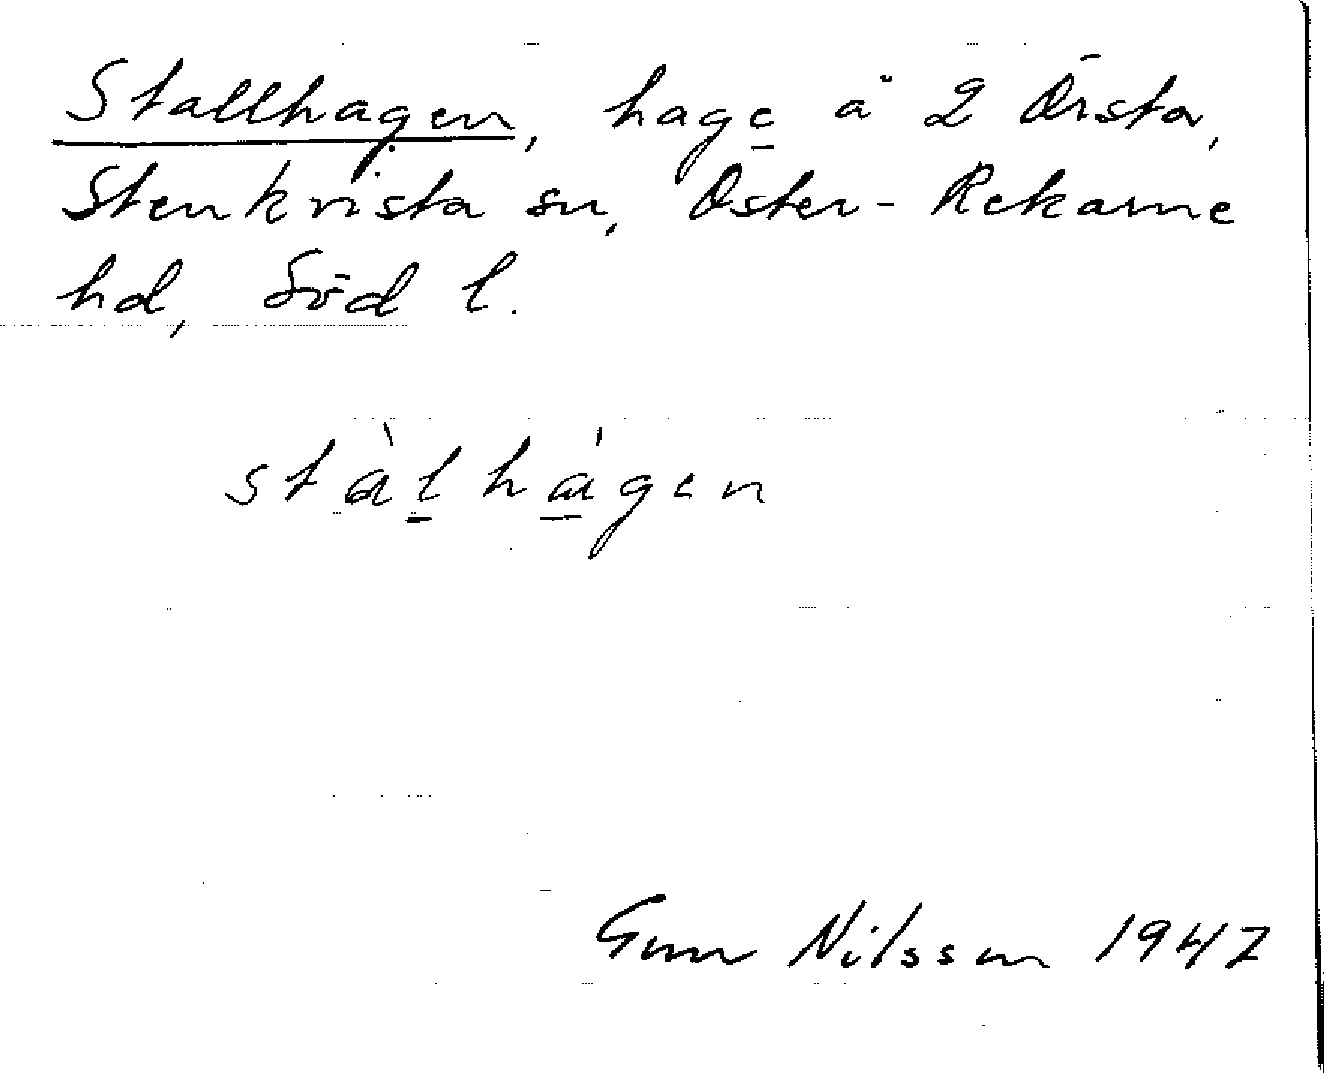 Stallhagen, hage å 2 Örsta,
Stenkvista sn, Öster-Rekarne
hd, Söd l.
stàlhágen
Gun Nilsson 1947